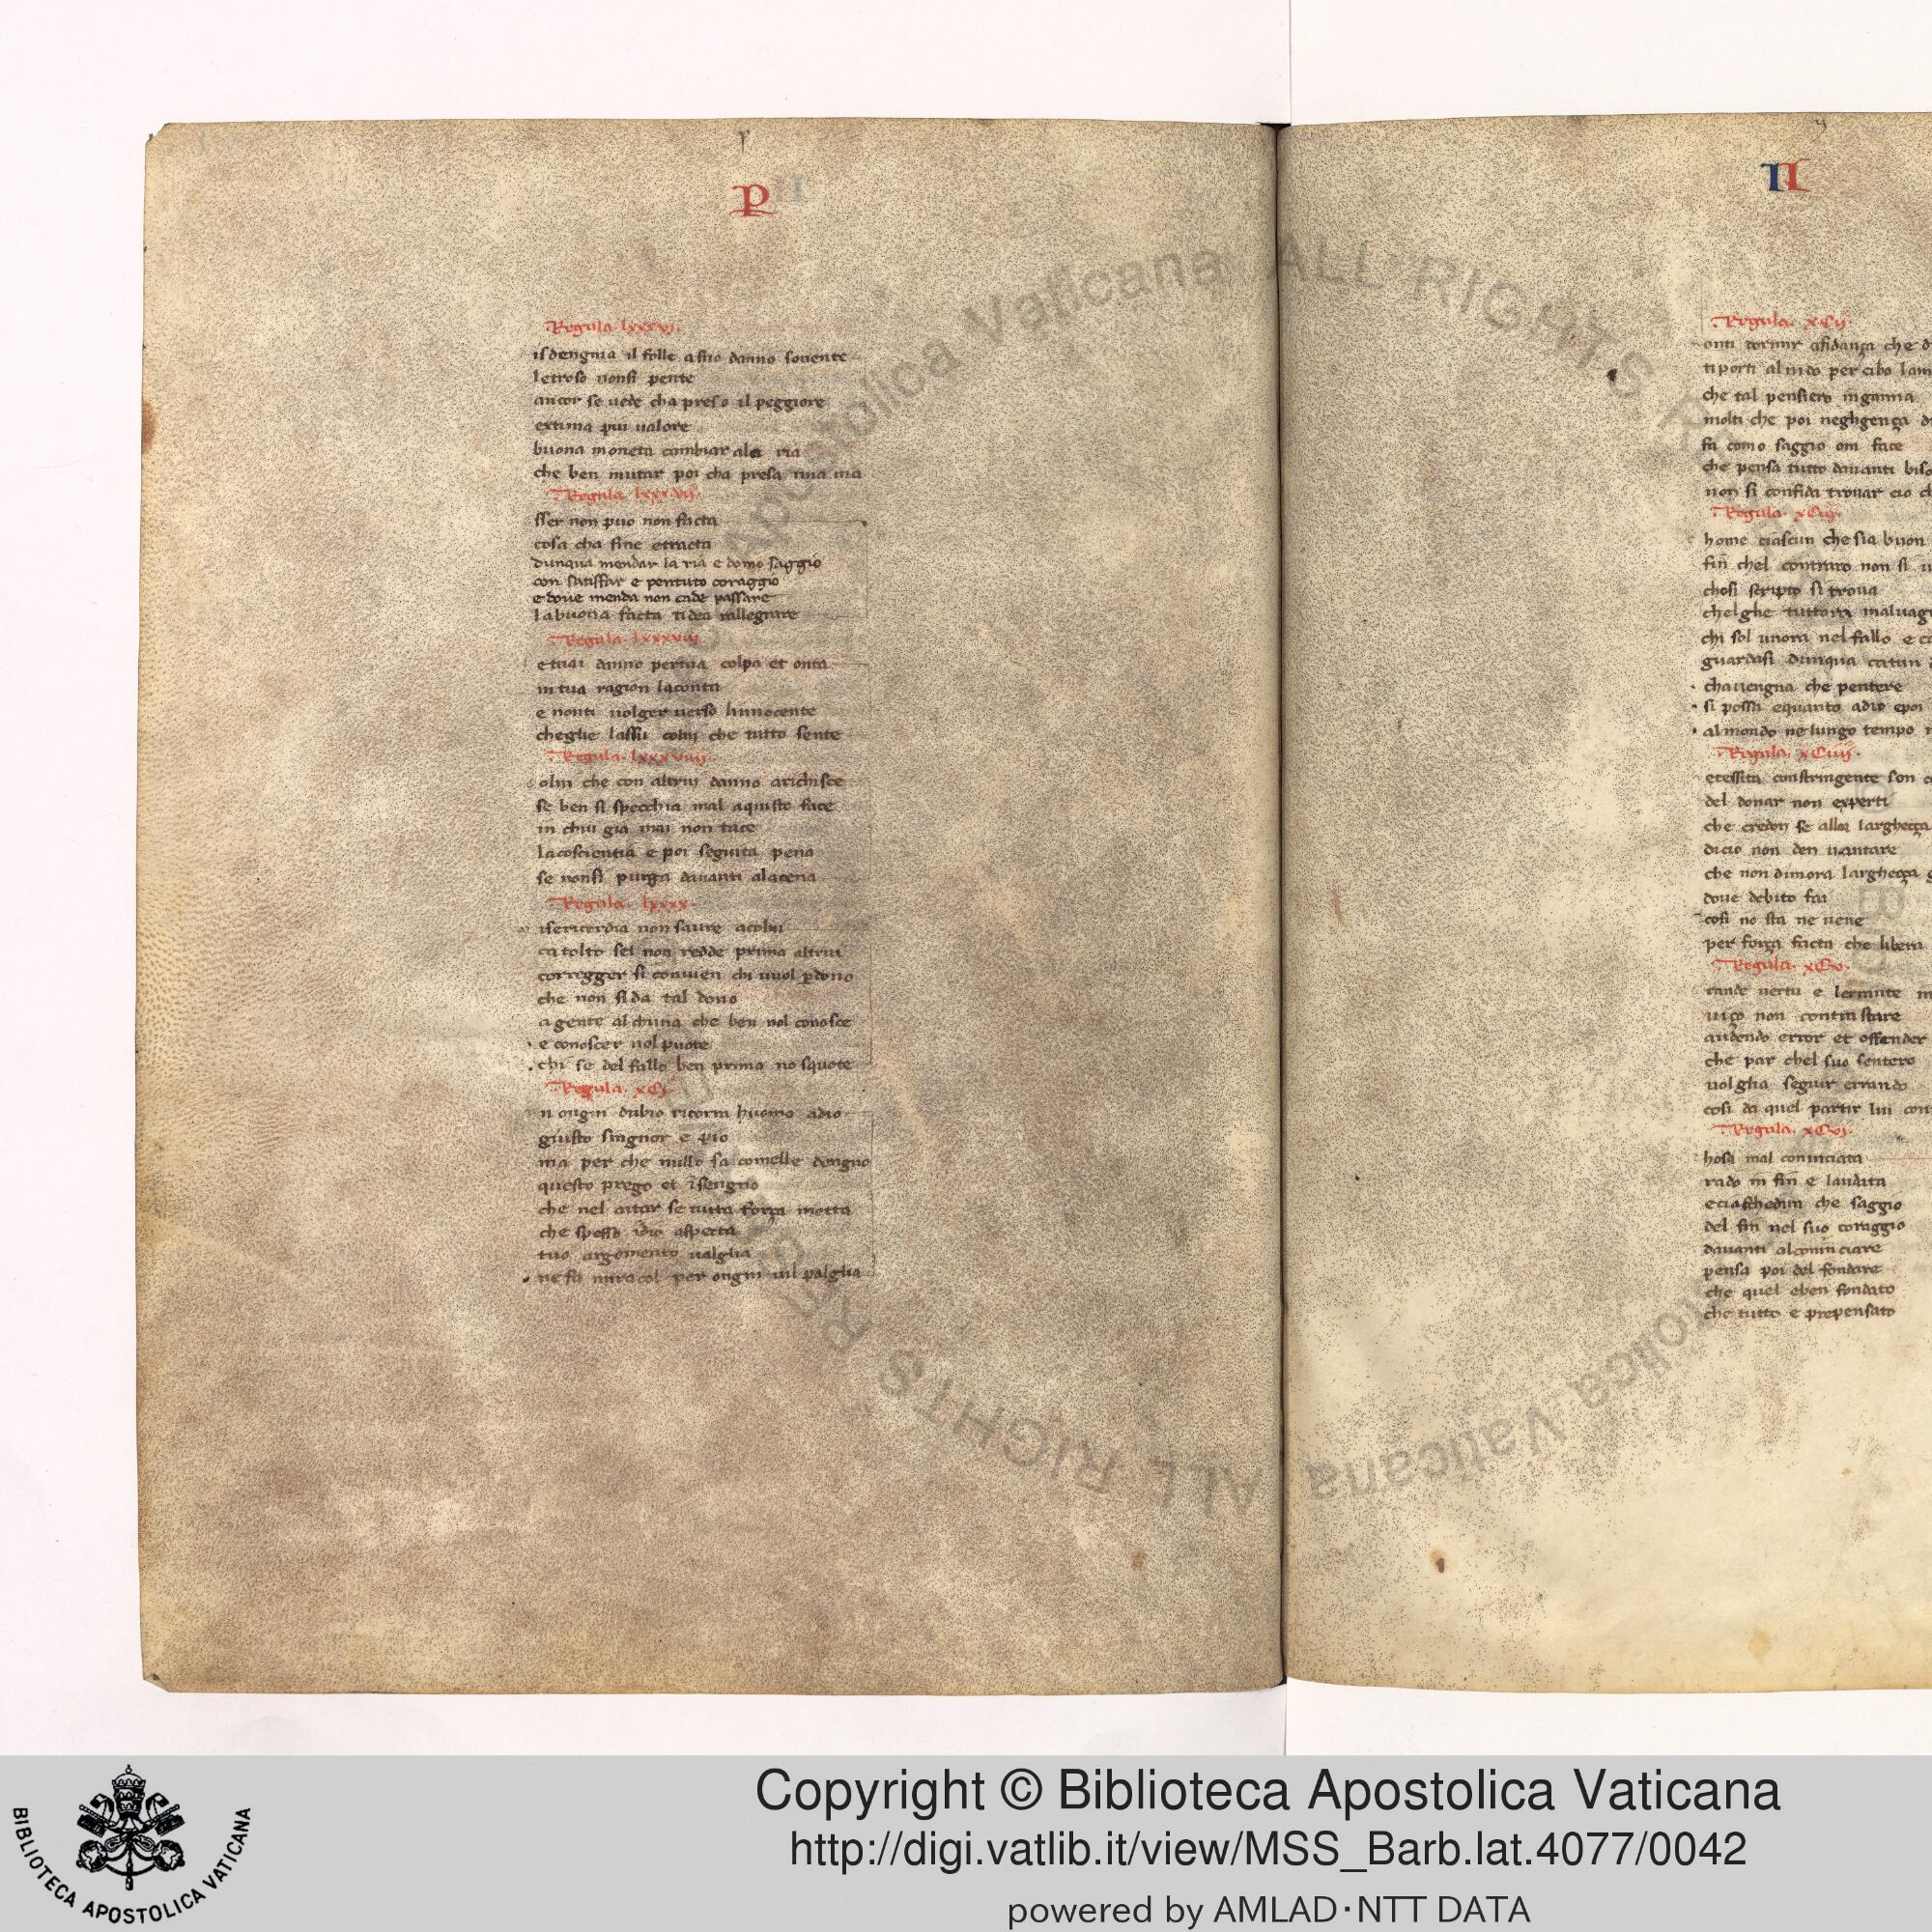 P
Regula. lxxxvj.
isdengnia il folle astio danno souente
letroso nonsi pente
ancor se uede cha preso il peggiore
extima piu ualore
buona moneta cambiar ala ria
che ben mutar poi cha presa una uia
Regula. lxxxvij.
sser non puo non facta
cosa cha fine etracta
dunqua mendar la ria e domo saggio
con satisffar e pentuto coraggio
e doue menda non cade passare
labuona facta tidea rallegrare
Regula. lxxxviij
etuai danno pertua colpa et onta
in tua ragion laconta
e nonti uolger uerso linnocente
cheglie lassu colui che tutto sente
Regula. lxxxviiij.
olui che con altrui danno arichisce
se ben si specchia mal aquisto face
in chui gia mai non tace
lacoscientia e poi seguita pena
se nonsi purga dauanti alacena
Regula. lxxxx.
isericordia non saure acolui
ca tolto sel non redde prima altrui
corregger si conuien chi uuol perdono
che non si da tal dono
a gente alchuna che ben nol conosce
e conoscer nol puote
chi se del fallo ben prima no squote
Regula. xCj
n ongni dubio ricorra huomo adio
giusto singnor e pio
ma per che nullo sa comelle dengno
questo prego et isengno
che nel aitar se tutta força metta
che spesso idio aspecta
tuo argomento uaglia
ne fa miracol per ongni uil palglia
II
Regula. xCij.
onti tormr afidança che d
tiporti al nido per cibo lam
che tal pensiero inganna
molti che poi neghgença d
fa como saggio om face
che pensa tutto dauanti biso
non si confida trouar cio ch
Regula. xCiij.
home ciascun che sia buon
fin chel contraro non si u
chosi scripto si troua
chelghe tuttora maluag
chi sol unora nel fallo e c
guardasi dunqua catun
chauengna che pentere
si possa equanto adio epoi
al mondo ne lungo tempo
Regula. xCiiij.
etessita constringente son
del donar non experti
che credon se alloa largheça
dicio non den uantare
che non dimora largheça
doue debito fia
cosi no sta ne uene
per força facta che libera
Regula. xCv.
rande uertu e lermnte m
uiço non contrastare
audendo error et offender
che par chel suo sentero
uol glia seguir errando
cosi da quel partir lui con
Regula. xCvj.
hosa mal cominciata
rado in fin e laudata
e ciaschedun che saggio
del fin nel suo coraggio
dauanti alcominciare
pensa poi del fondare
che quel eben fondato
che tutto e prepensato
Copyright © Biblioteca Apostolica Vaticana
http://digi.vatlib.it/view/MSS_Barb.lat.4077/0042
powered by AMLAD·NTT DATA
BIBLIOTECA APOSTOLICA VATICANA